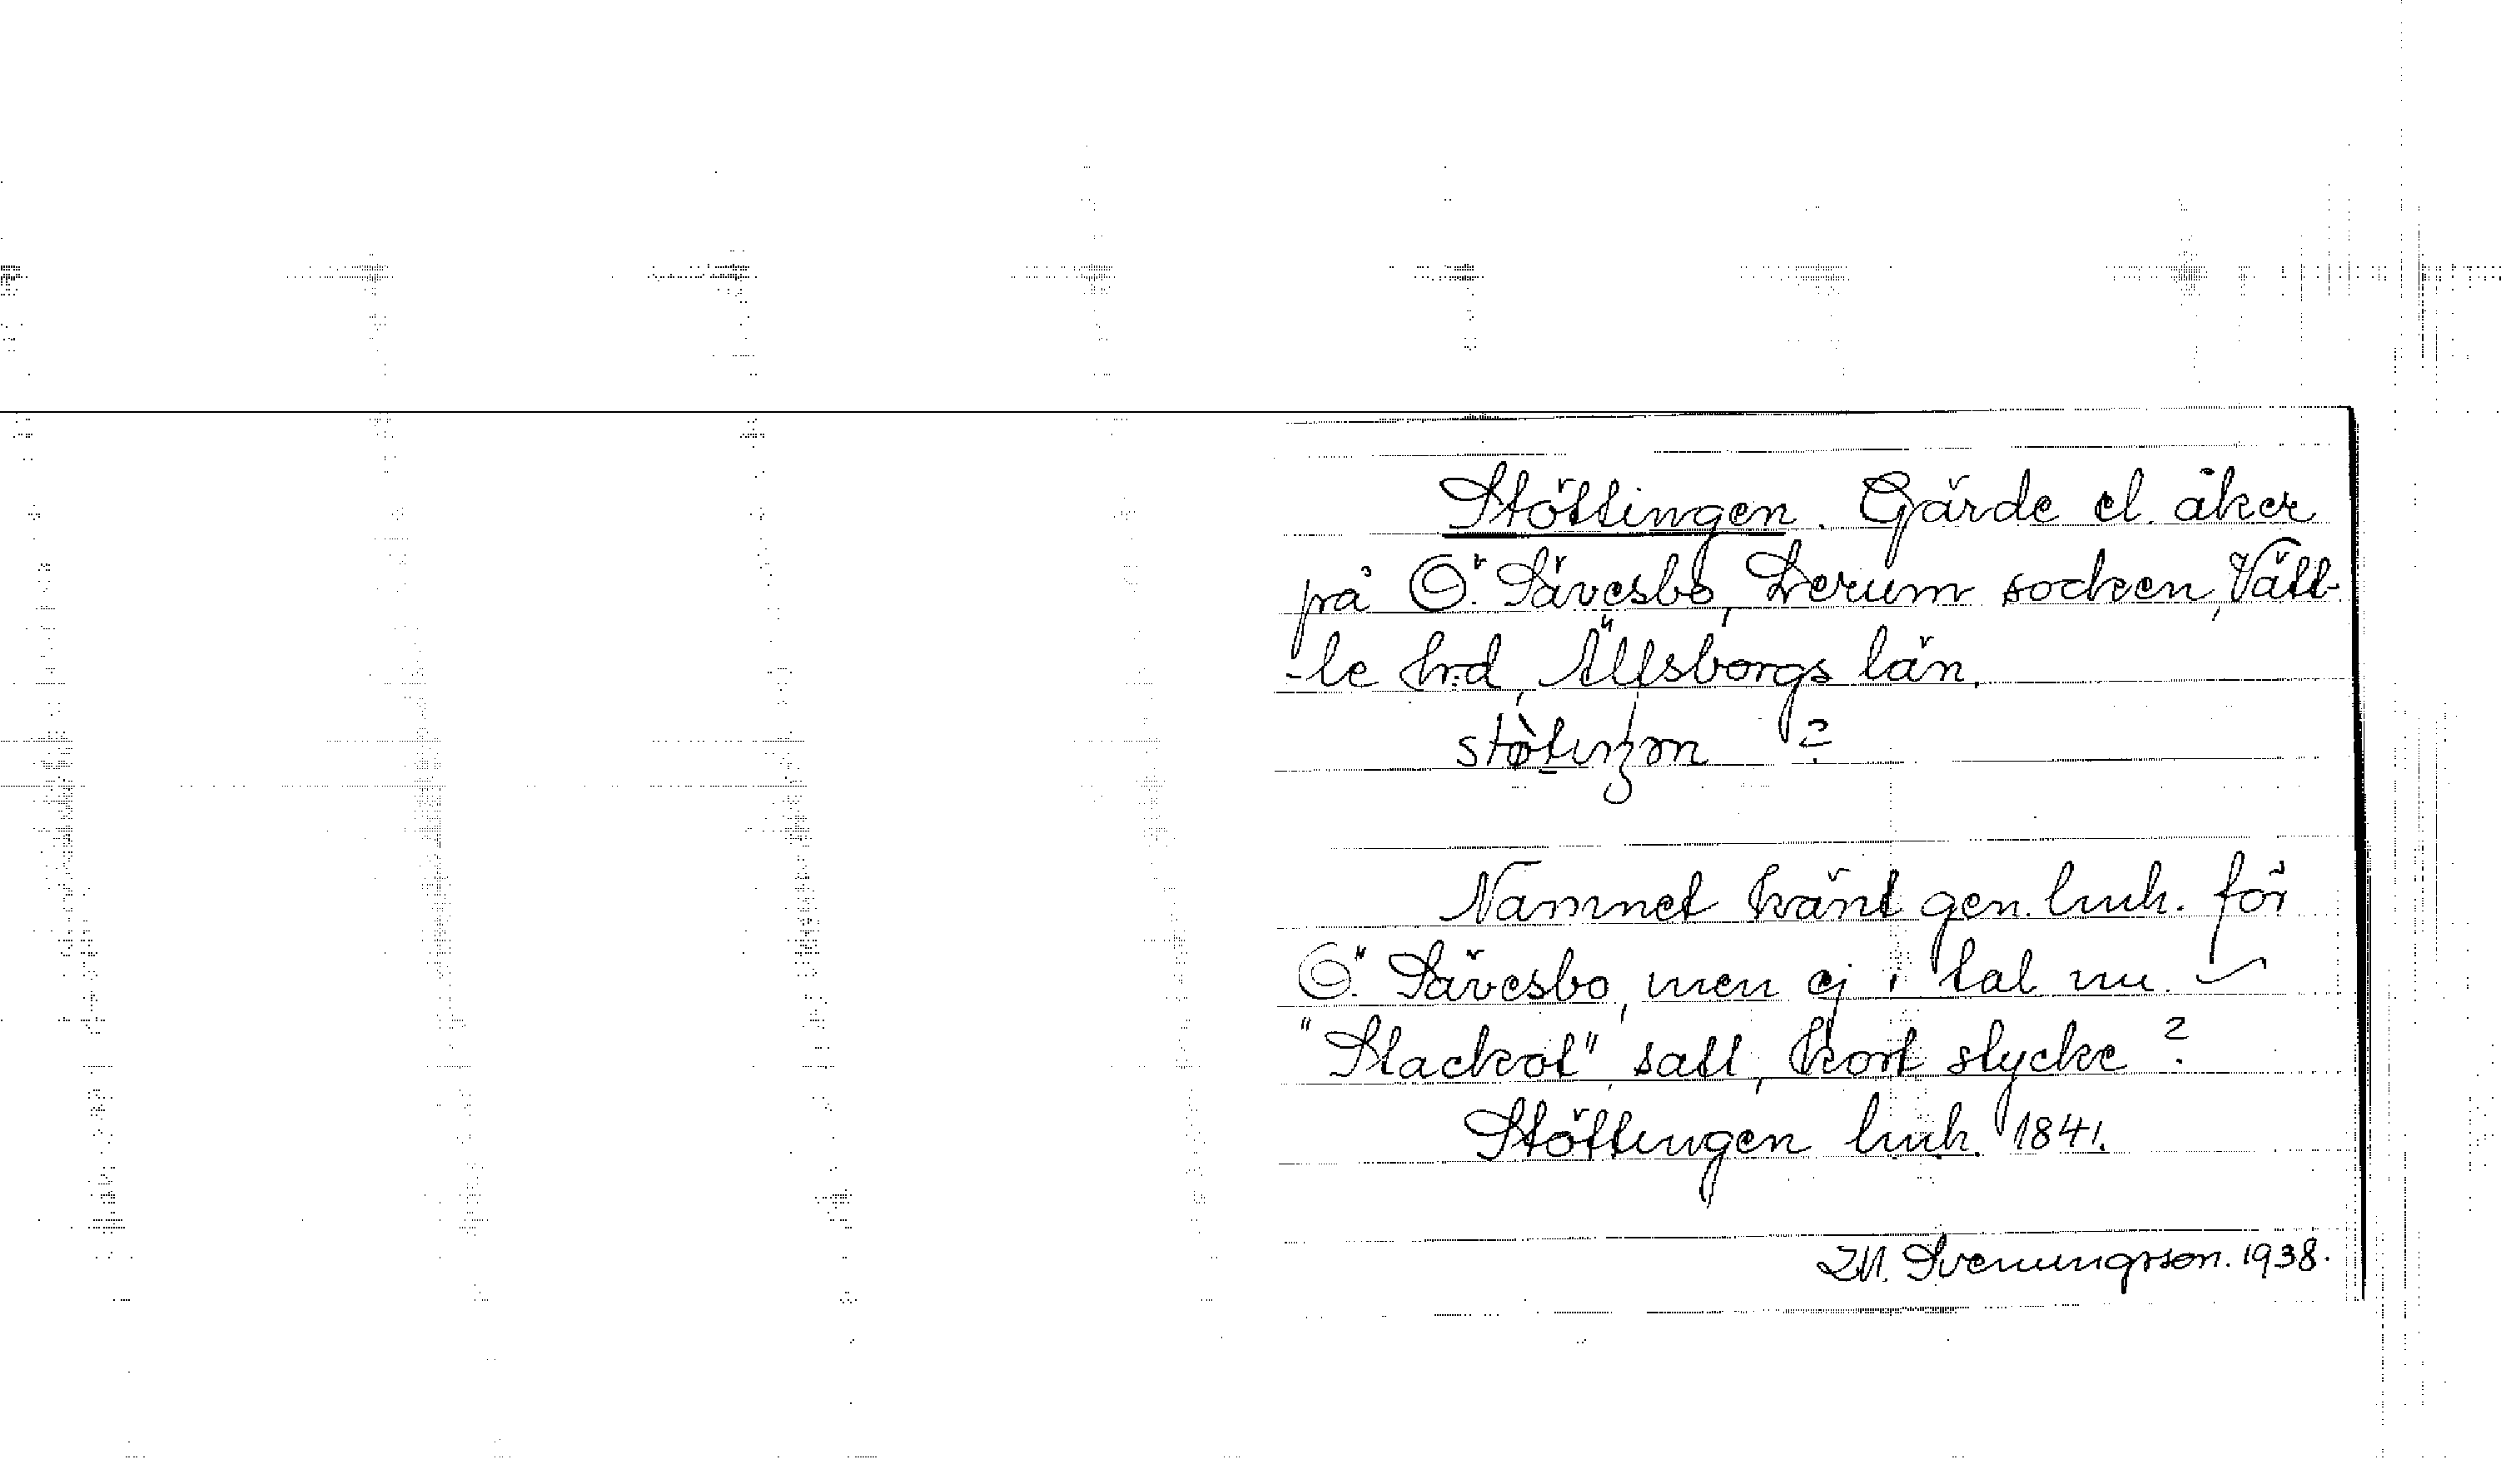 Stöttingen. Gärde el. åker
på Ö. Sävesbo, Lerum socken, Vätt-
-le hrd, Älfsborgs län.
stø̀tɩŋən ?
Namnet känt gen. lmh. för
Ö. Sävesbo, men ej i tal nu. –
"Stackot", satt, kort stycke ?
Stöttingen lmh. 1841.
Svenungsson. 1938.